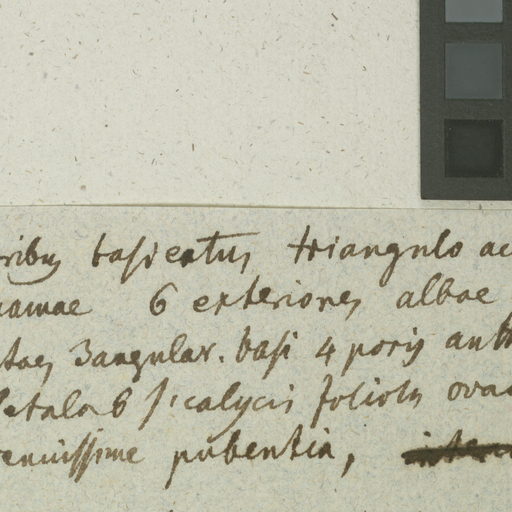 ribus basi cretus triangulo ac
uamae 6 exteriores albae
tae 3angular. basi 4 poris ant
Petala 6 s. calycis foliolis ova
tenuissime pubentia,